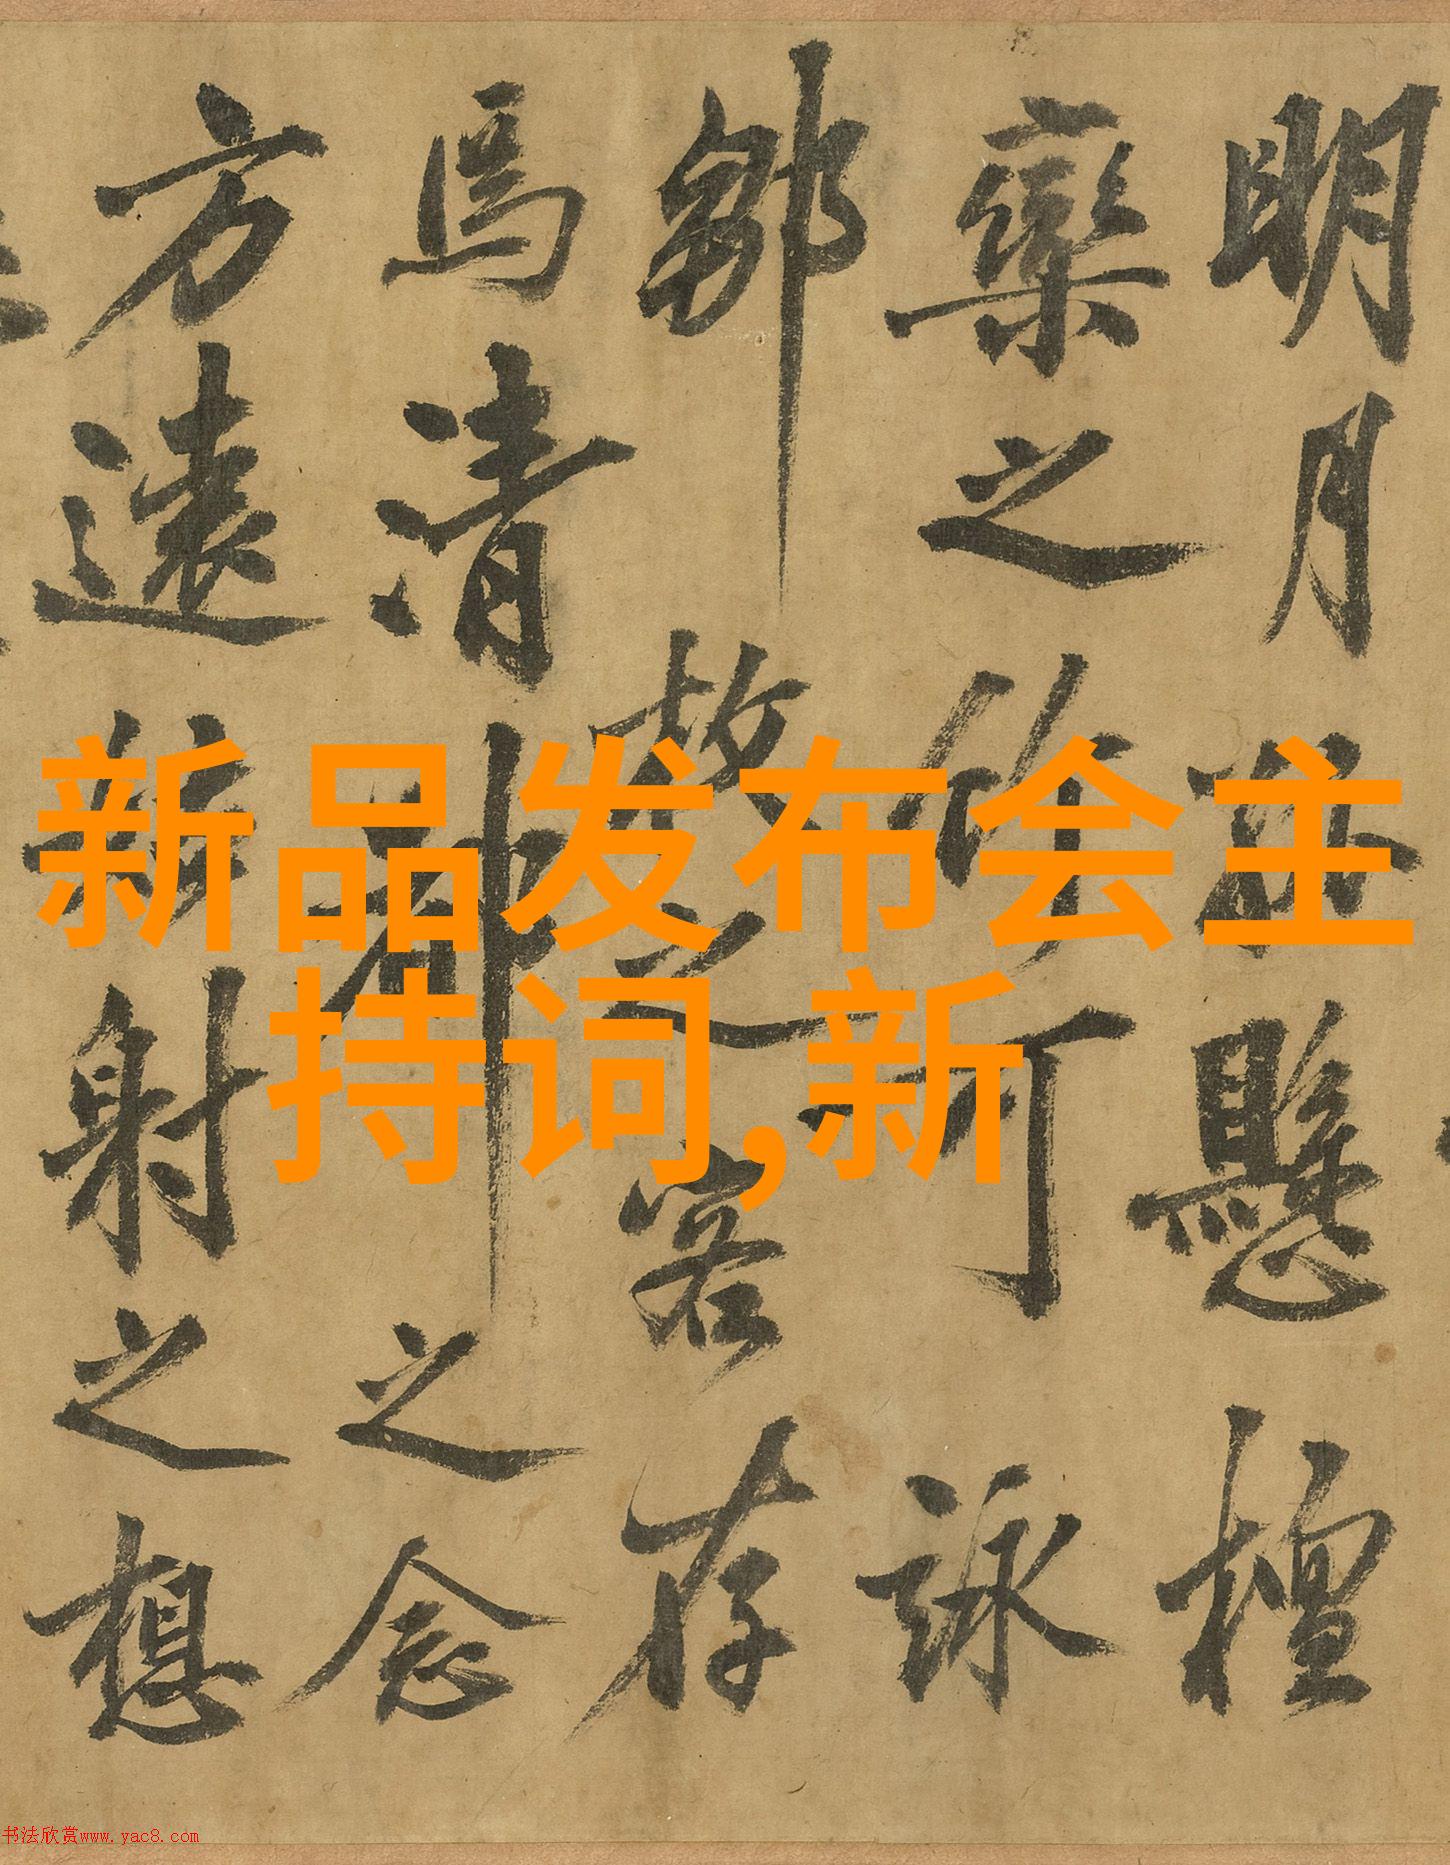 明月祇懸檀
欒之作可詠
鄒　故之客存
馬清　神之念
方遠　新射之想
新品发布会主
持词,新
书法欣赏www.yac8.com